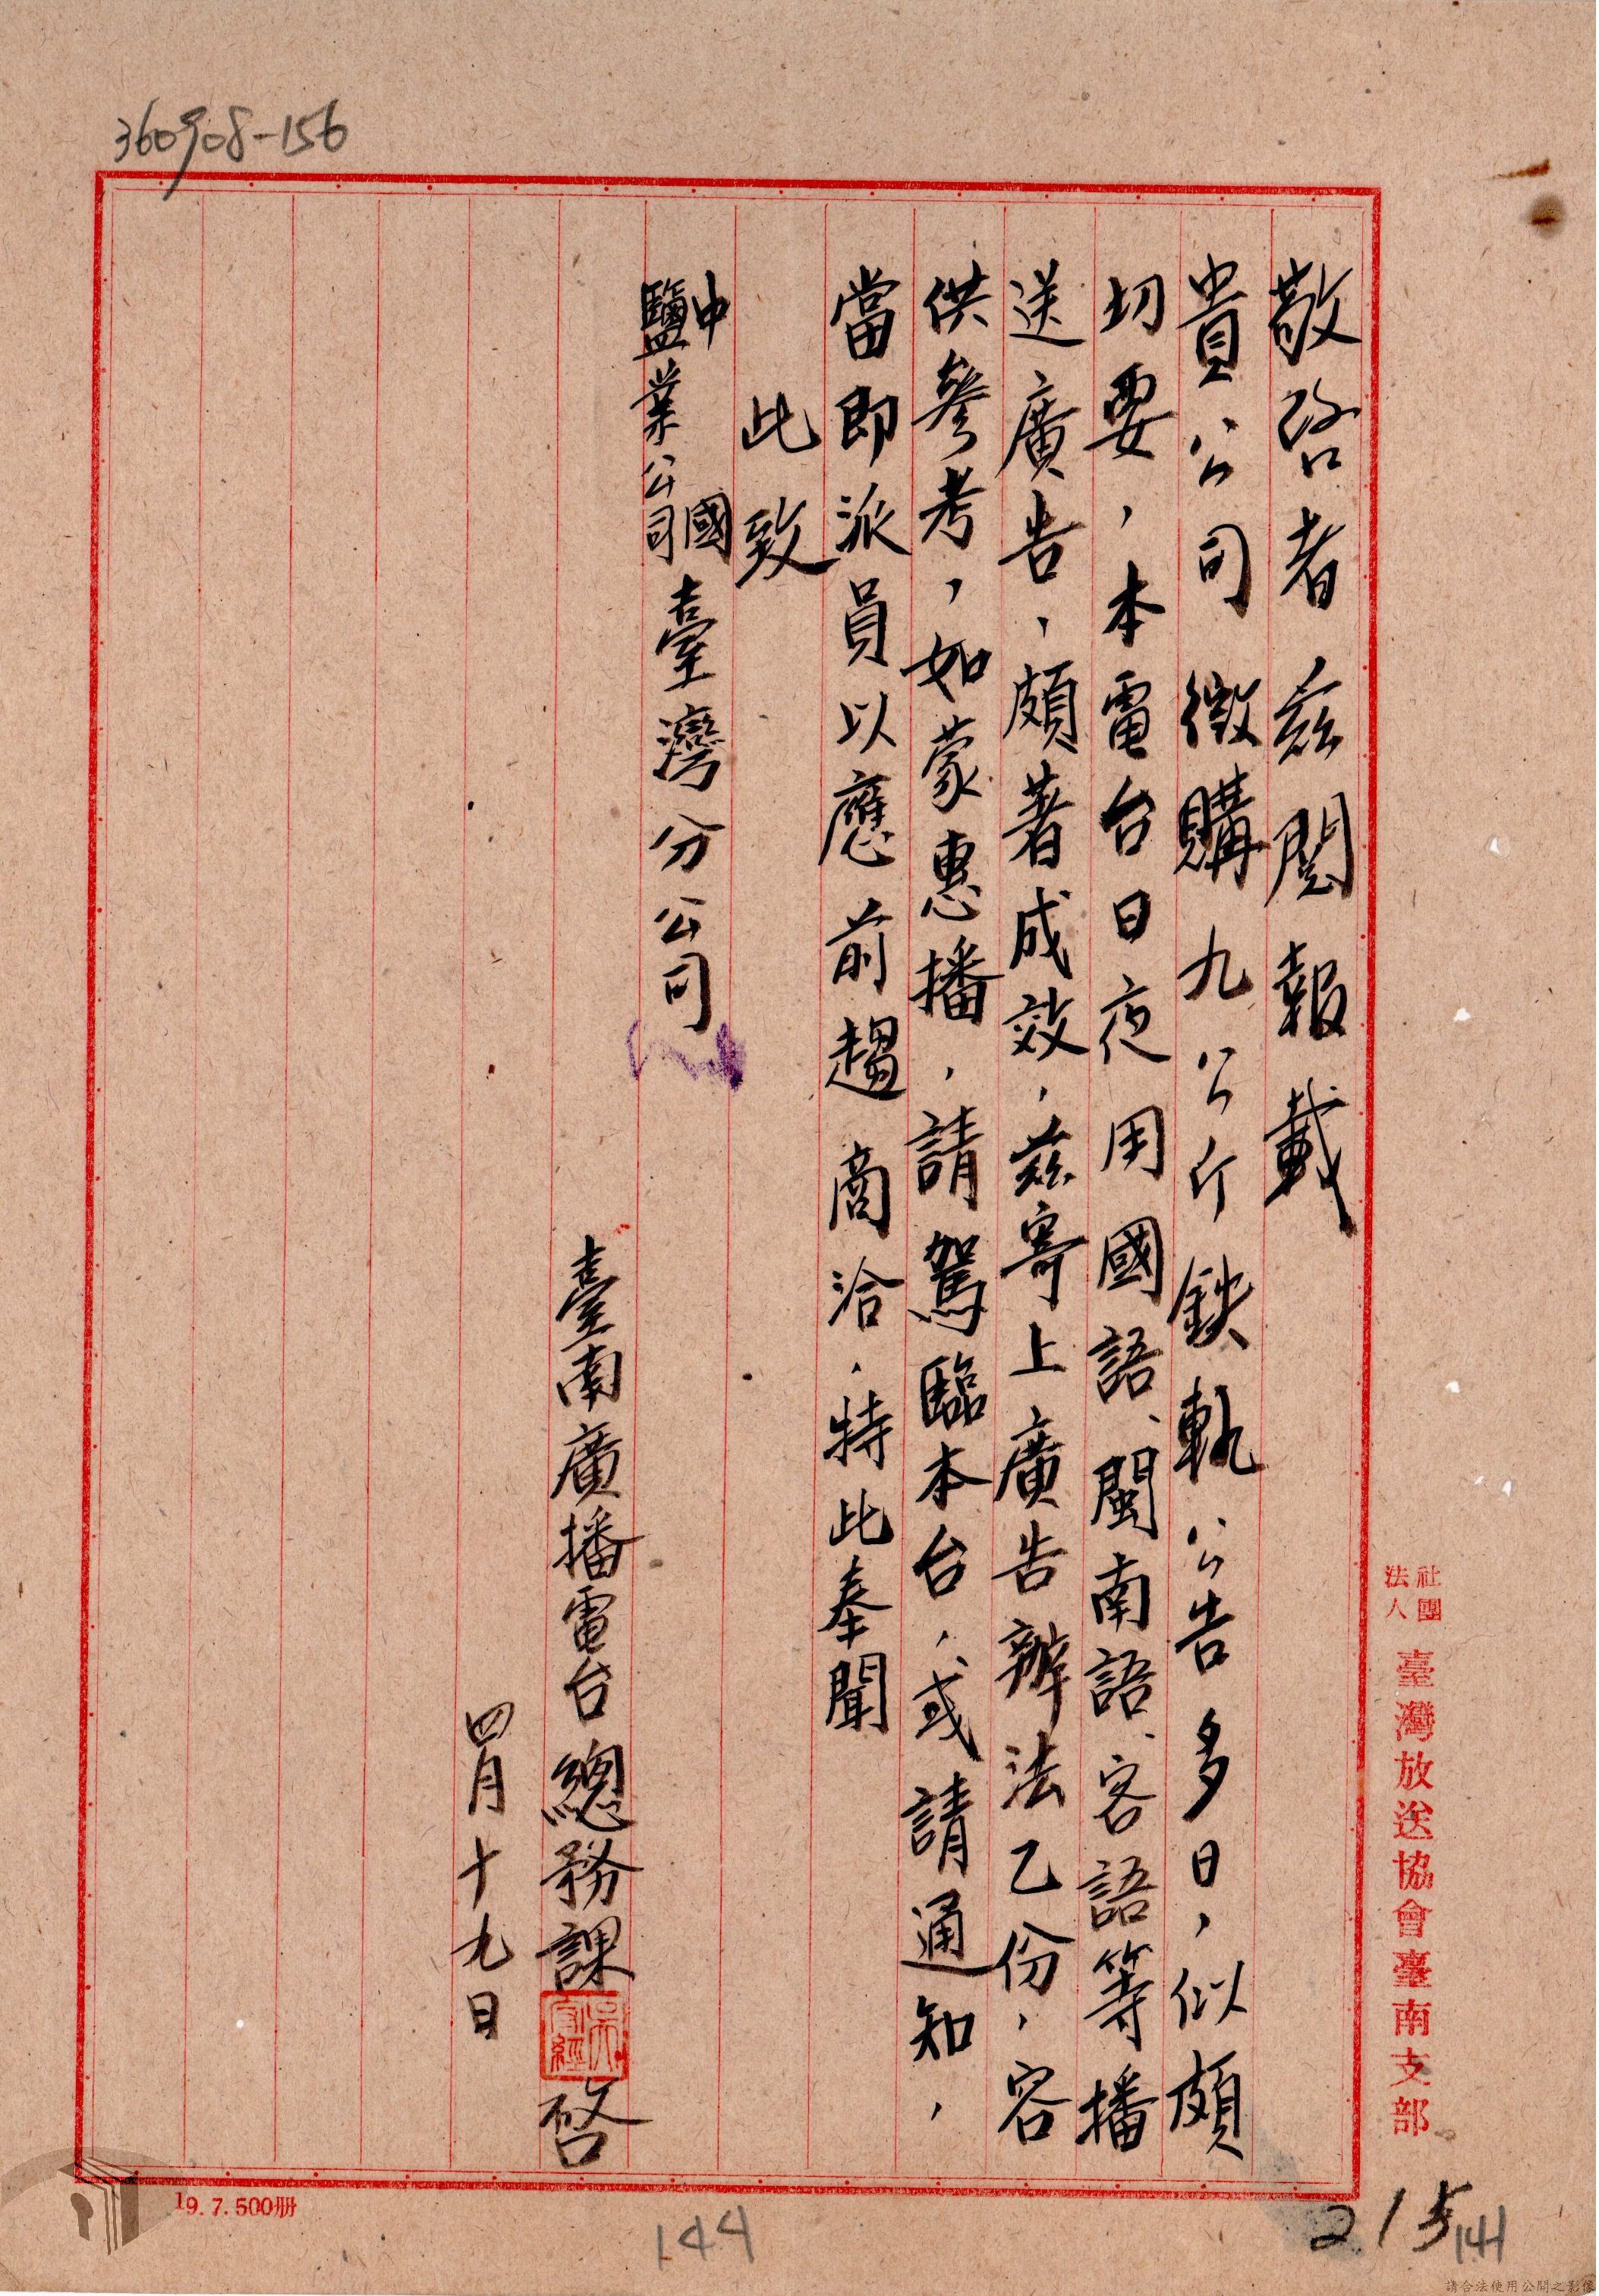 360908-156
敬啓者茲閱報載
貴公司徵購九公斤鉄軌公告多日，似頗
切要，本電台日夜用國語、閩南語、客語等播
送廣告，頗著成效，茲寄上廣告辦法乙份，容
供參考，如蒙惠播，請駕臨本台，或請通知，
當即派員以應前趨商洽，特此奉聞
此致
中國
鹽業公司臺灣分公司
臺南廣播電台總務課啓
四月十九日
社團
法人
臺灣放送協會臺南支部
19.7.500冊
144
215
141
請合法使用公開之影像